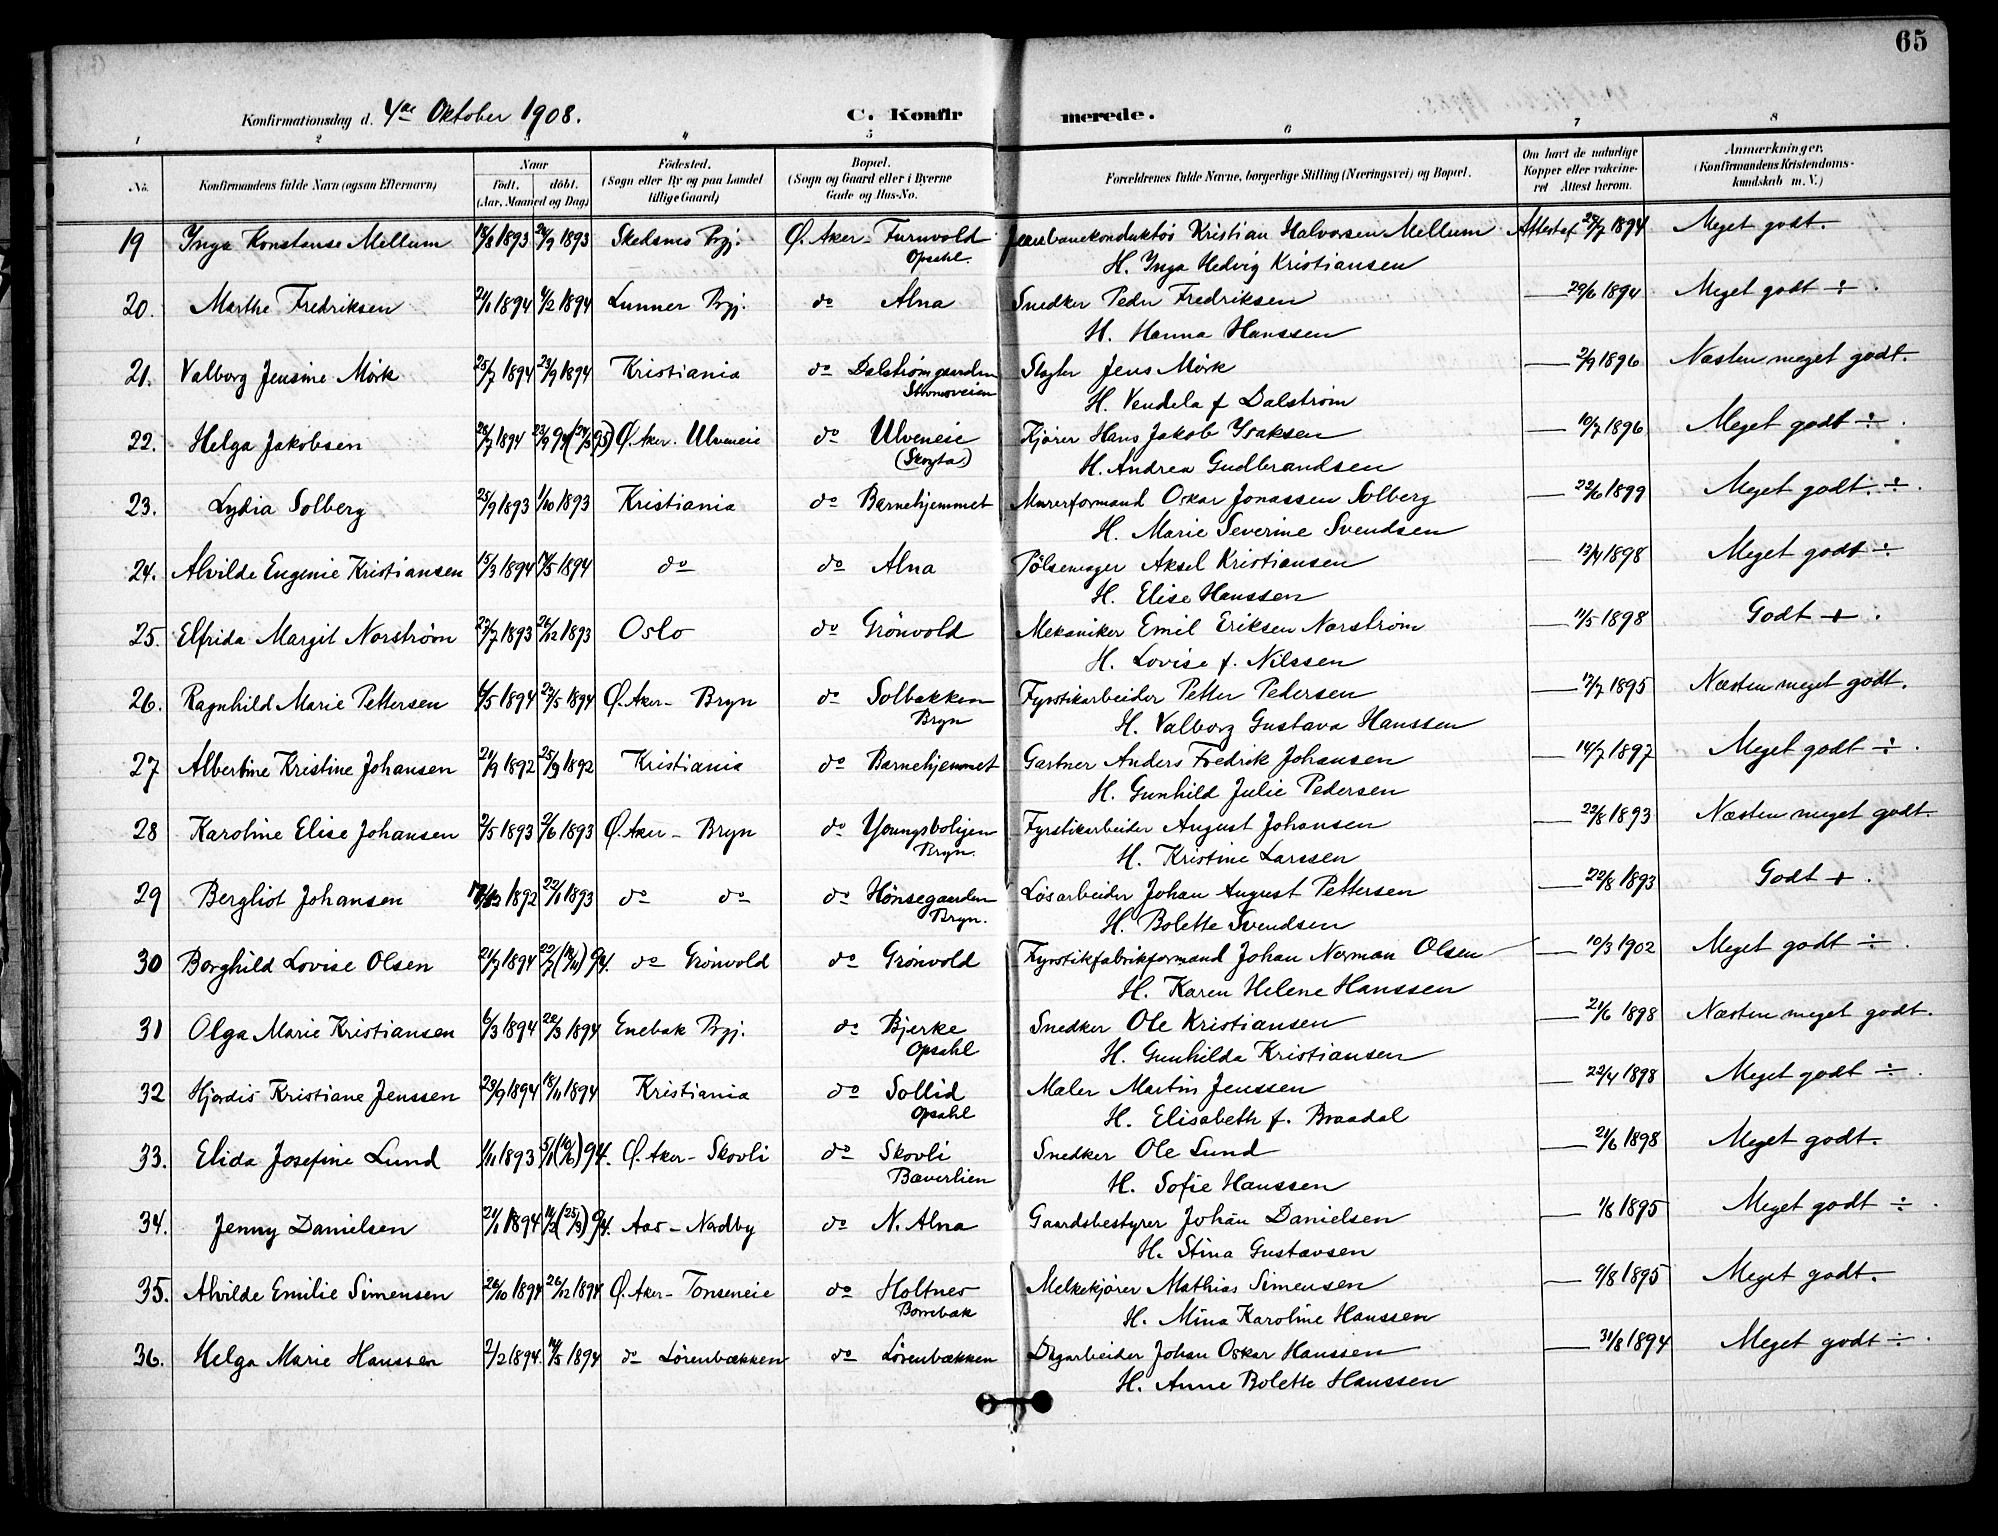 65
Konfirmationsdag d. 4de Oktober 1908. C. Konfirmerede.
1 2 3 4 5 6 7 8
No. Konfirmandens fulde Navn (ogsaa Efternavn) Naar født. døbt. (Aar, Maaned og Dag) Fødested. (Sogn eller By og paa Landet tillige Gaard) Bopæl. (Sogn og Gaard eller i Byerne Gade og Hus-No.) Forældrenes fulde Navne, borgerlige Stilling (Næringsvei) og Bopæl. Om havt de naturlige Kopper eller vakcineret Attest herom. Anmærkninger. (Konfirmandens Kristendomskundskab m. V.)
19 Inga Konstanse Mellum 18/8 1893 24/9 1893 Skedsmo Pgj. Ø. Aker - Furuvold Jernbanekonduktør Kristian Halvorsen Mellum Attestaf 25/7 1894 Meget godt.
Opsahl. H. Inga Hedvig Kristiansen
20. Marthe Fredriksen 2/1 1894 4/2 1894 Lunner Pgj. do Alna Snedker Peder Fredriksen — 29/6 1894 Meget godt ÷.
H. Hanna Hanssen
21. Valborg Jensine Mørk 25/7 1894 23/9 1894 Kristiania do Dalstrømgaarden Slagter Jens Mørk — 2/9 1896 Næsten meget godt.
Strømsveien H. Vendela f Dalstrøm
22. Helga Jakobsen 28/7 1894 23/9 94 Ø. Aker. Ulveneie do Ulveneie Kjører Hans Jakob Isaksen — 10/7 1896 Meget godt ÷.
(Skogta) H. Andrea Gudbrandsen
23. Lydia Solberg 25/9 1893 1/10 1893 Kristiania do Barnehjemmet Murerformand Oskar Jonassen Solberg — 22/6 1899 Meget godt. ÷.
H. Marie Severine Svendsen
24. Alvilde Eugenie Kristiansen 15/3 1894 14/5 1894 do do Alna Pølsemager Aksel Kristiansen — 13/4 1898 Meget godt ÷
H. Elise Hanssen
25. Elfrida Margit Norstrøm 27/7 1893 26/12 1893 Oslo do Grønvold Mekaniker Emil Eriksen Norstrøm — 11/5 1898 Godt + .
H. Lovise f. Nilssen
26. Ragnhild Marie Pettersen 6/5 1894 27/5 1894 Ø. Aker - Bryn do Solbakken Fyrstikarbeider Petter Pedersen — 17/7 1895 Næsten meget godt.
Bryn H. Valborg Gustava Hanssen
27 Albertine Kristine Johansen 21/9 1892 25/9 1892 Kristiania do Barnehjemmet Gartner Anders Fredrik Johansen — 14/7 1897 Meget godt ÷ .
H. Gunhild Julie Pedersen
28 Karoline Elise Johansen 2/5 1893 2/6 1893 Ø. Aker - Bryn do Youngsboligen Fyrstikarbeider August Johansen — 22/8 1893 Næsten meget godt.
Bryn. H. Kristine Larssen
29 Bergliot Johansen 1892 22/1 1893 do do do Hønsegaarden Løsarbeider Johan August Pettersen — 22/8 1893 Godt + .
Bryn. H. Bolette Svendsen
30 Borghild Lovise Olsen 21/7 1894 94. do Grønvold do Grønvold Fyrstikfabrikformand Johan Norman Olsen — 10/3 1902 Meget godt ÷ .
H. Karen Helene Hanssen
31 Olga Marie Kristiansen 6/3 1894 1894 Enebak Pgj. do Bjerke Snedker Ole Kristiansen — 21/6 1898 Næsten meget godt.
Opsahl H. Gunhilda Kristiansen
32 Hjørdis Kristiane Jenssen 23/9 1894 18/11 1894 Kristiania do Sollid Maler Martin Jenssen — 22/4 1898 Meget godt ÷ .
Opsahl H. Elisabeth f. Braadal
33. Elida Josefine Lund 1/11 1893 94. Ø. Aker - Skovli do Skovli Snedker Ole Lund — 21/6 1898 Meget godt.
Bæverlien H. Sofie Hanssen
34. Jenny Danielsen 21/1 1894 94. Aas - Nordby do N. Alna Gaardsbestyrer Johan Danielsen — 1/8 1895 Meget godt ÷ .
H. Stina Gustavsen
35. Alvilde Emilie Simensen 26/10 1894 26/12 1894 Ø. Aker - Tonseneie do Holtnes Melkekjører Mathias Simensen — 9/8 1895 Meget godt.
Borrebak H. Mina Karoline Hanssen
36. Helga Marie Hanssen 2/2 1894. 14/5 1894 do Lørenbækken do Lørenbækken Dagarbeider Johan Oskar Hanssen — 31/8 1894 Meget godt ÷ .
H. Anne Bolette Hanssen